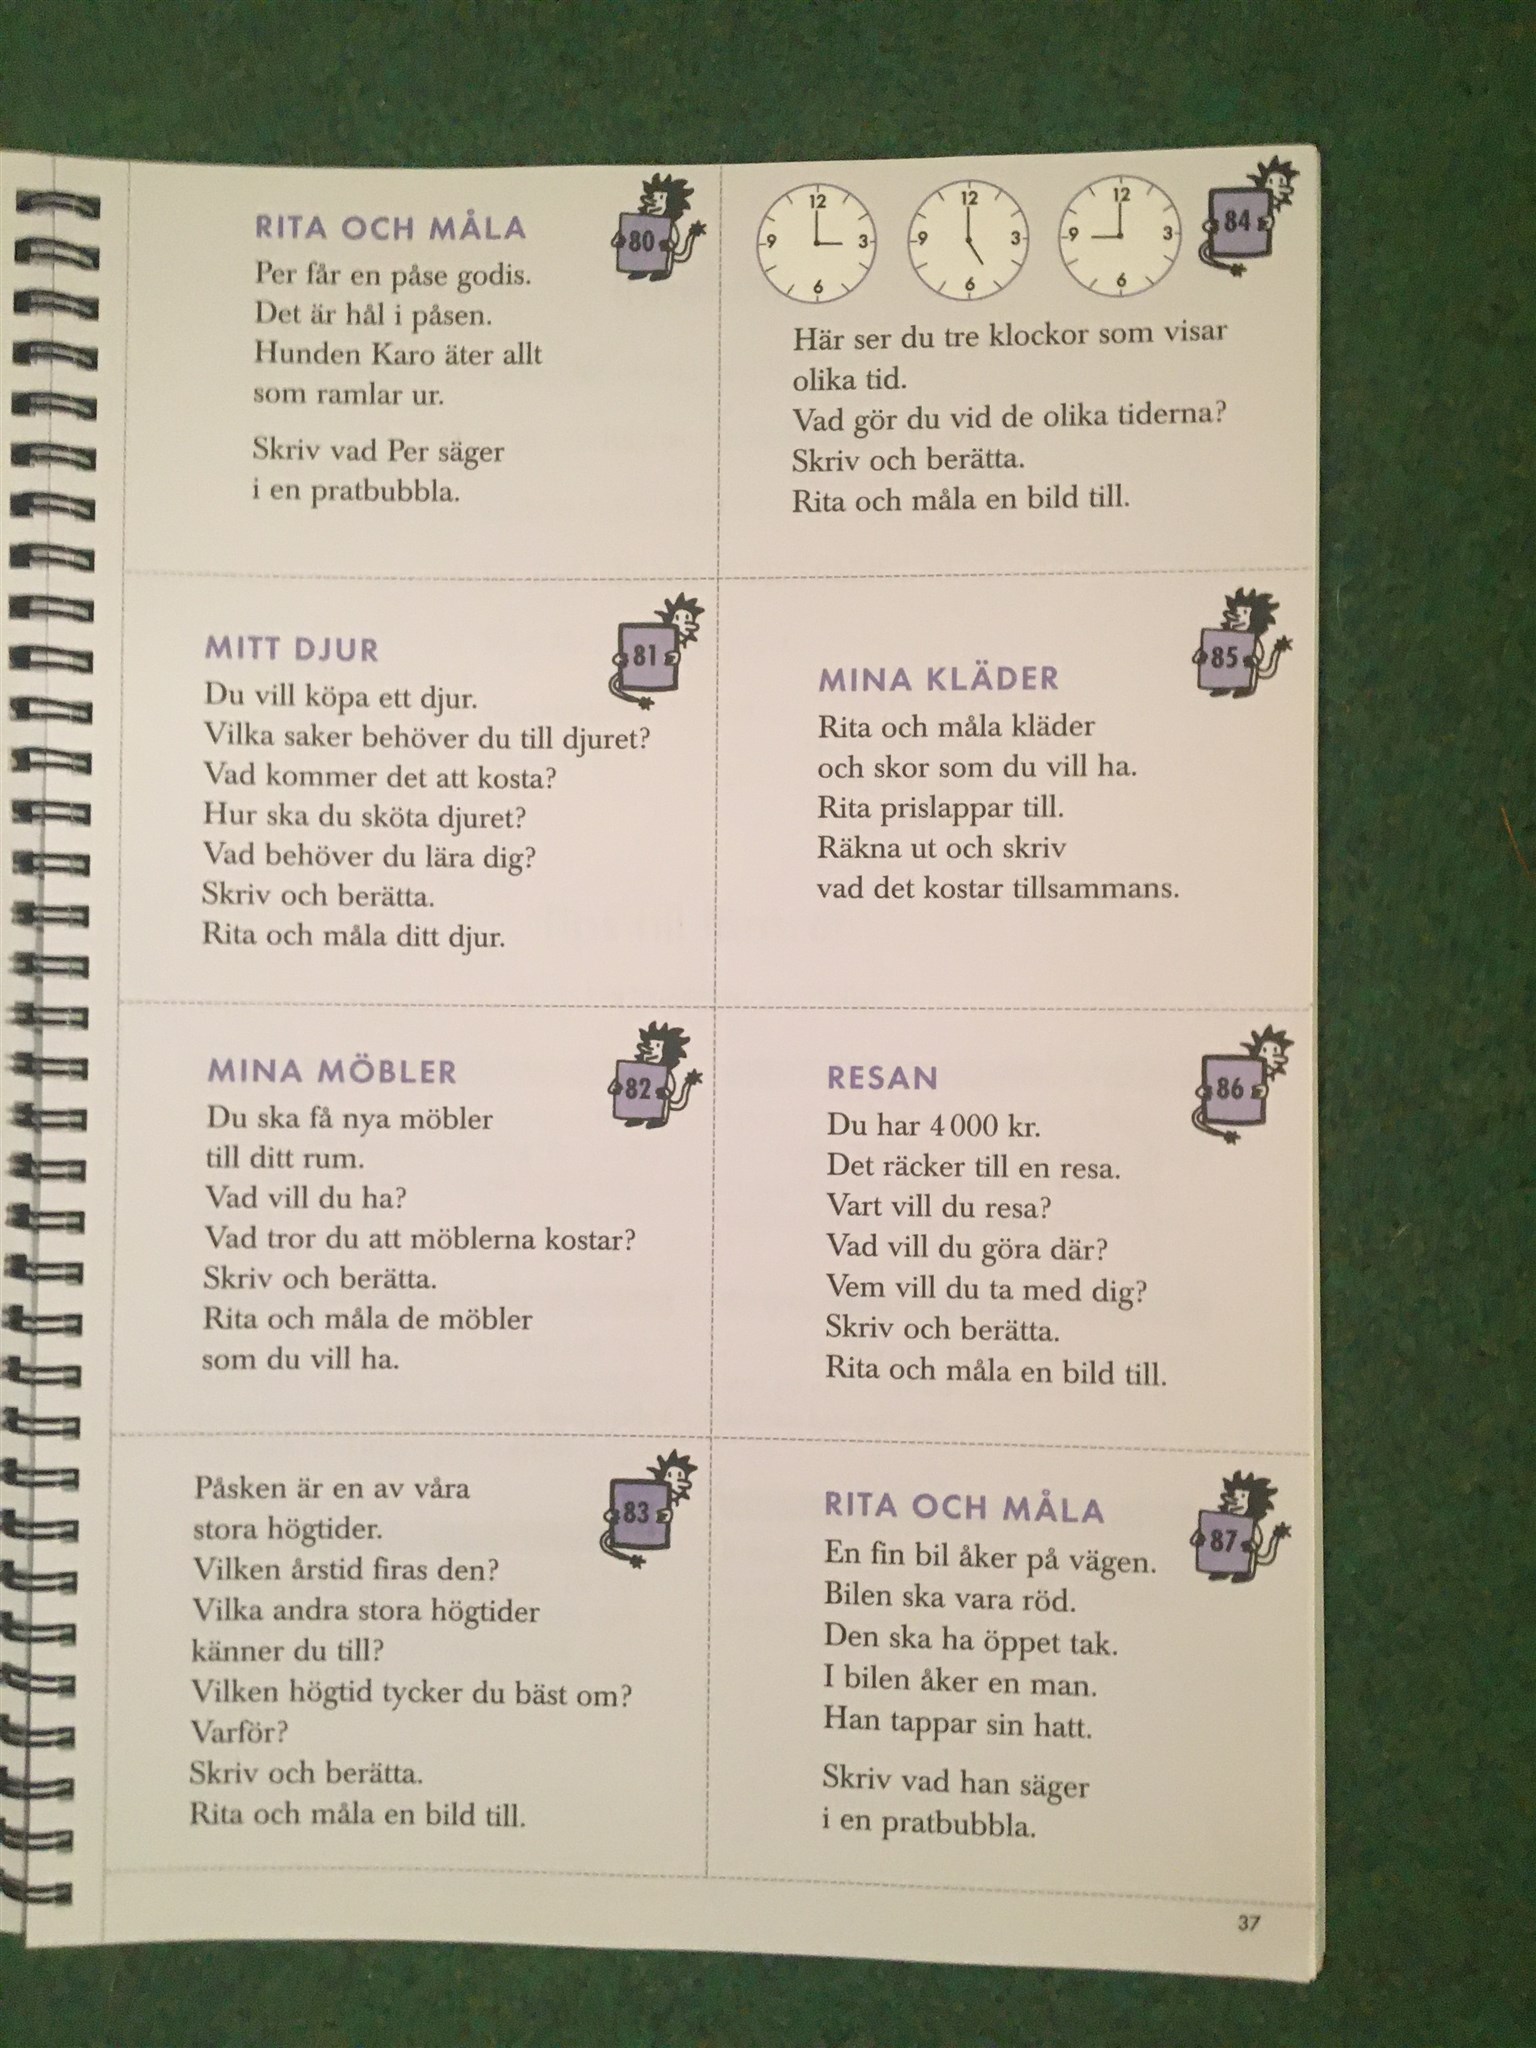 RITA OCH MÅLA
80
Per får en påse godis.
Det är hål i påsen.
Hunden Karo äter allt
som ramlar ur.
Skriv vad Per säger
i en pratbubbla.
MITT DJUR
81
Du vill köpa ett djur.
Vilka saker behöver du till djuret?
Vad kommer det att kosta?
Hur ska du sköta djuret?
Vad behöver du lära dig?
Skriv och berätta.
Rita och måla ditt djur.
MINA MÖBLER
82
Du ska få nya möbler
till ditt rum.
Vad vill du ha?
Vad tror du att möblerna kostar?
Skriv och berätta.
Rita och måla de möbler
som du vill ha.
83
Påsken är en av våra
stora högtider.
Vilken årstid firas den?
Vilka andra stora högtider
känner du till?
Vilken högtid tycker du bäst om?
Varför?
Skriv och berätta.
Rita och måla en bild till.
12
3
6
9
12
3
6
9
12
3
6
9
84
Här ser du tre klockor som visar
olika tid.
Vad gör du vid de olika tiderna?
Skriv och berätta.
Rita och måla en bild till.
MINA KLÄDER
85
Rita och måla kläder
och skor som du vill ha.
Rita prislappar till.
Räkna ut och skriv
vad det kostar tillsammans.
RESAN
86
Du har 4 000 kr.
Det räcker till en resa.
Vart vill du resa?
Vad vill du göra där?
Vem vill du ta med dig?
Skriv och berätta.
Rita och måla en bild till.
RITA OCH MÅLA
87
En fin bil åker på vägen.
Bilen ska vara röd.
Den ska ha öppet tak.
I bilen åker en man.
Han tappar sin hatt.
Skriv vad han säger
i en pratbubbla.
37